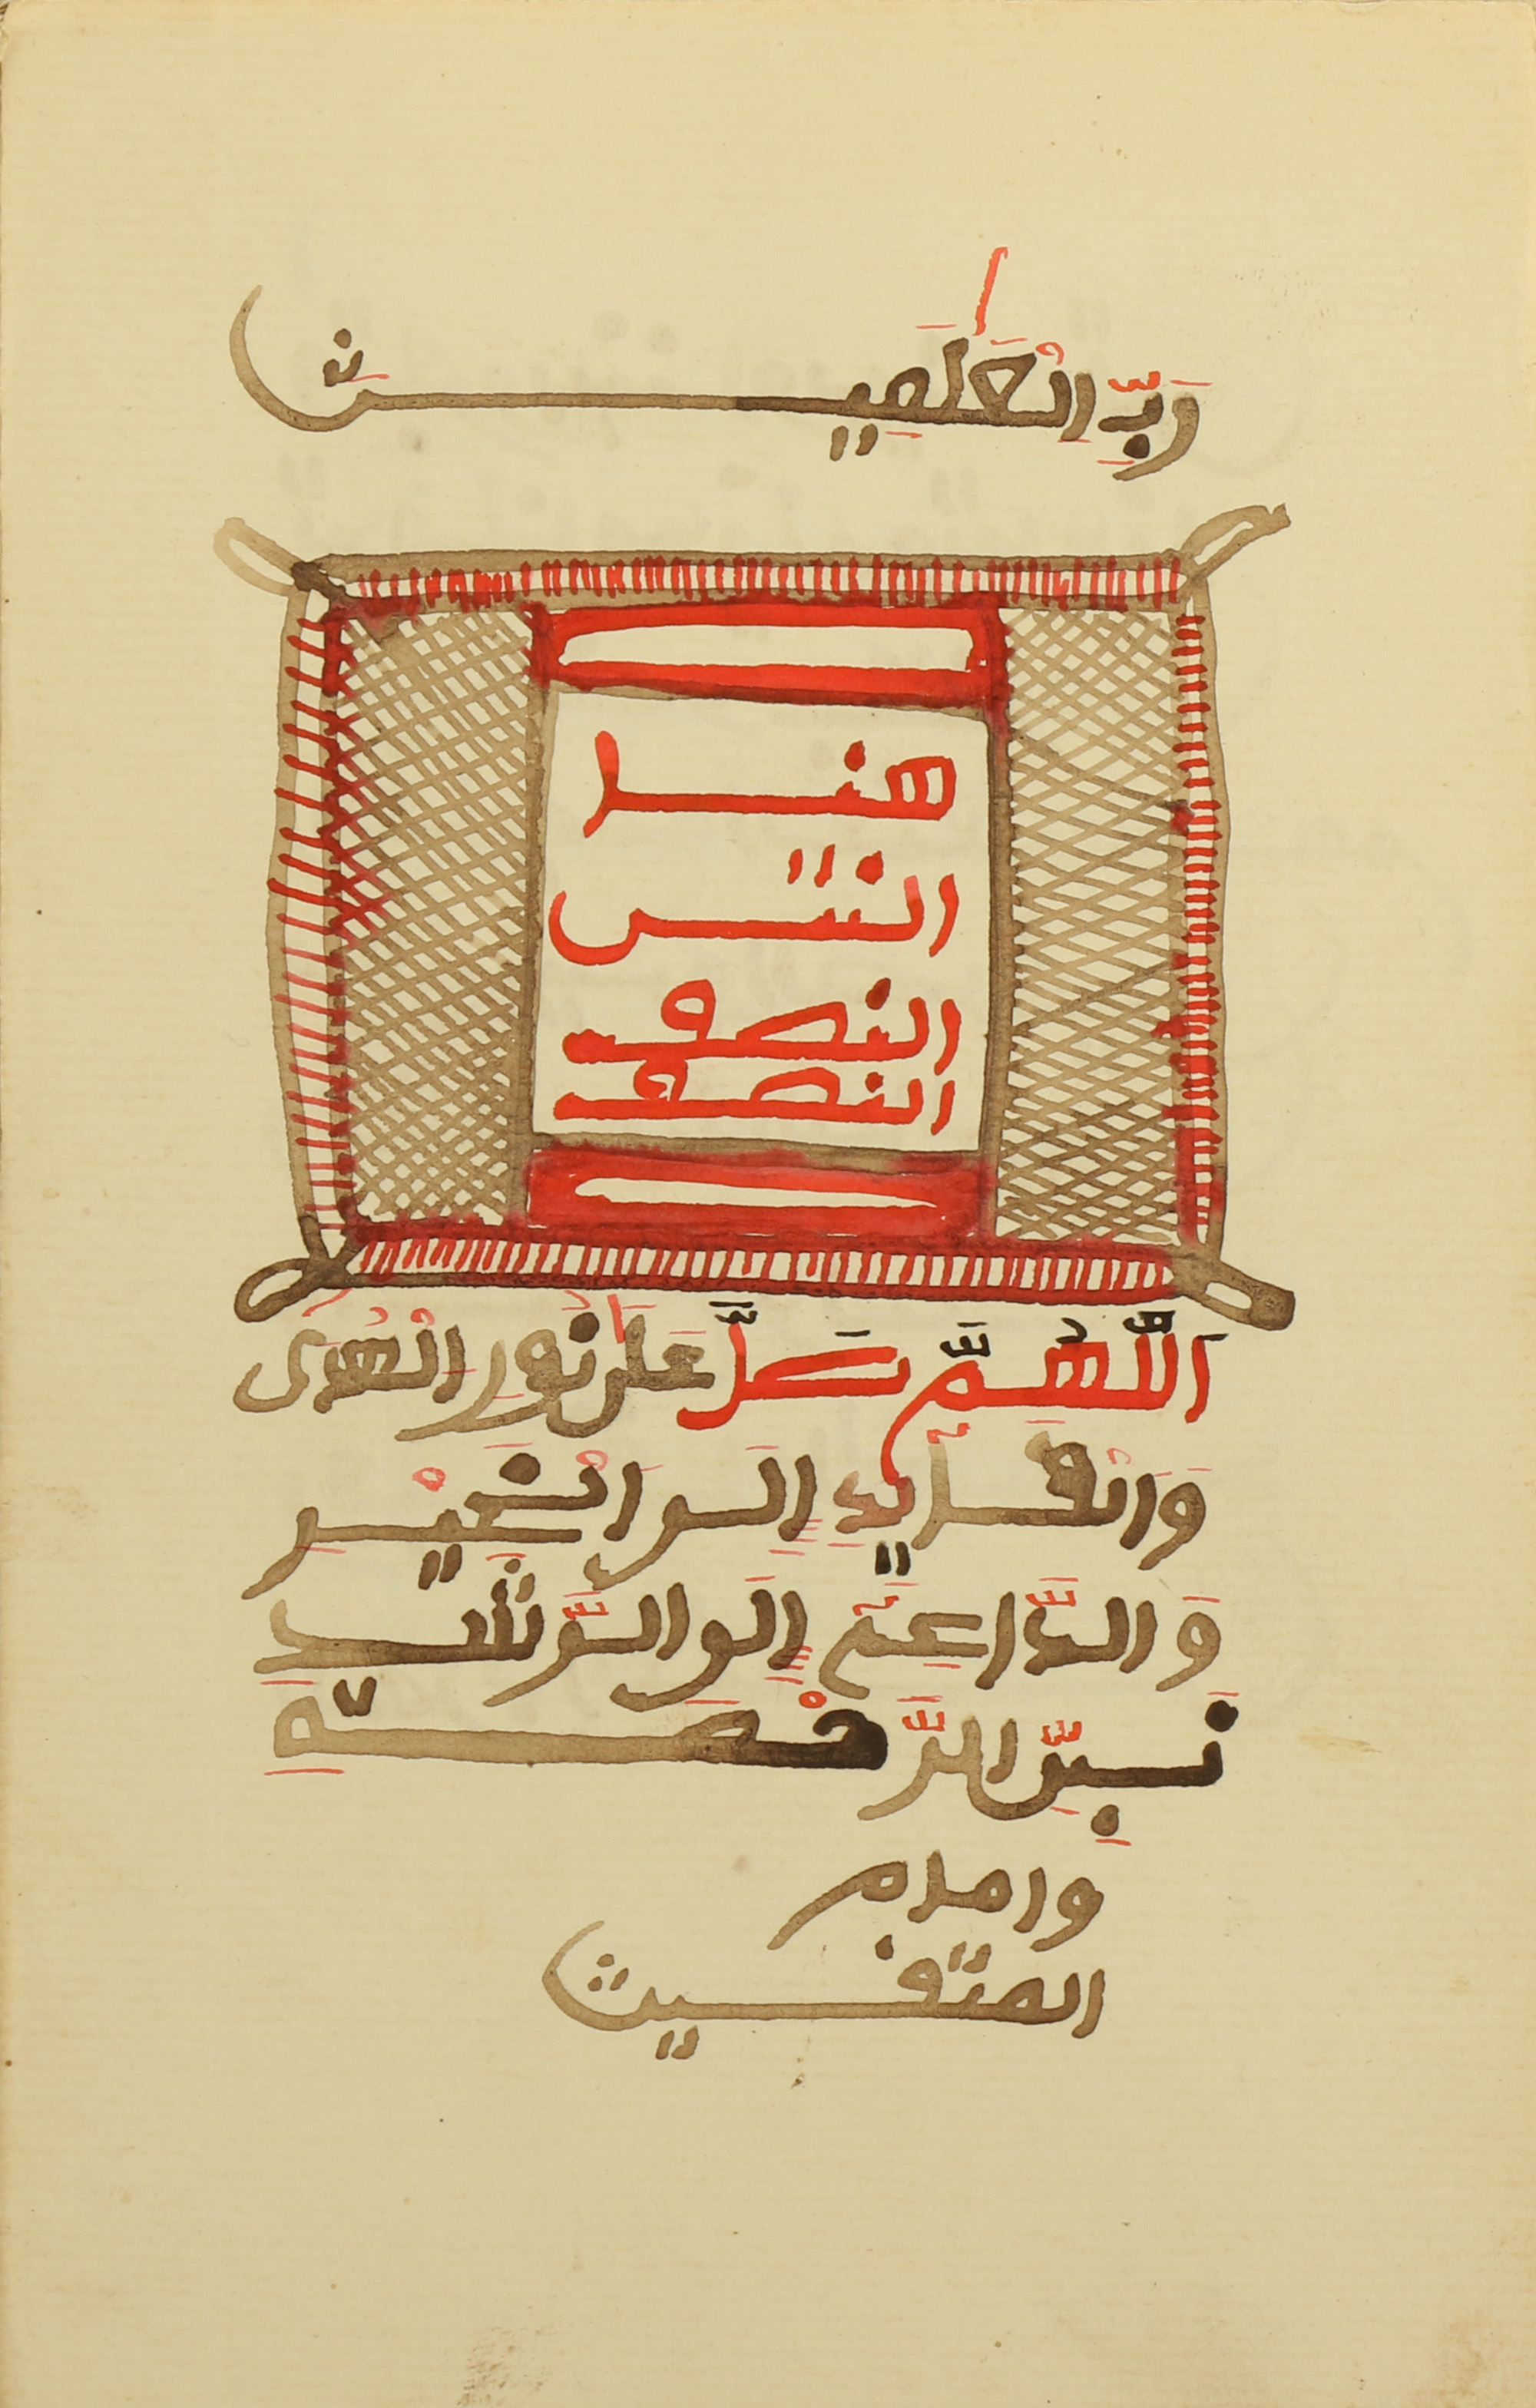 رَبِّ الْعَٰلَمِينَ
هنا
النصف
النصف
اَللَّهُمَّ صَلِّ عَلَىٰ نُورِ الْهُدَىٰ
وَالْقَايِدِ إِلَى الْخَيْرِ
وَالدَّاعِي إِلَى الرَّشَدِ
نَبِيِّ الرَّحْمَةِ
وامام
المتقين